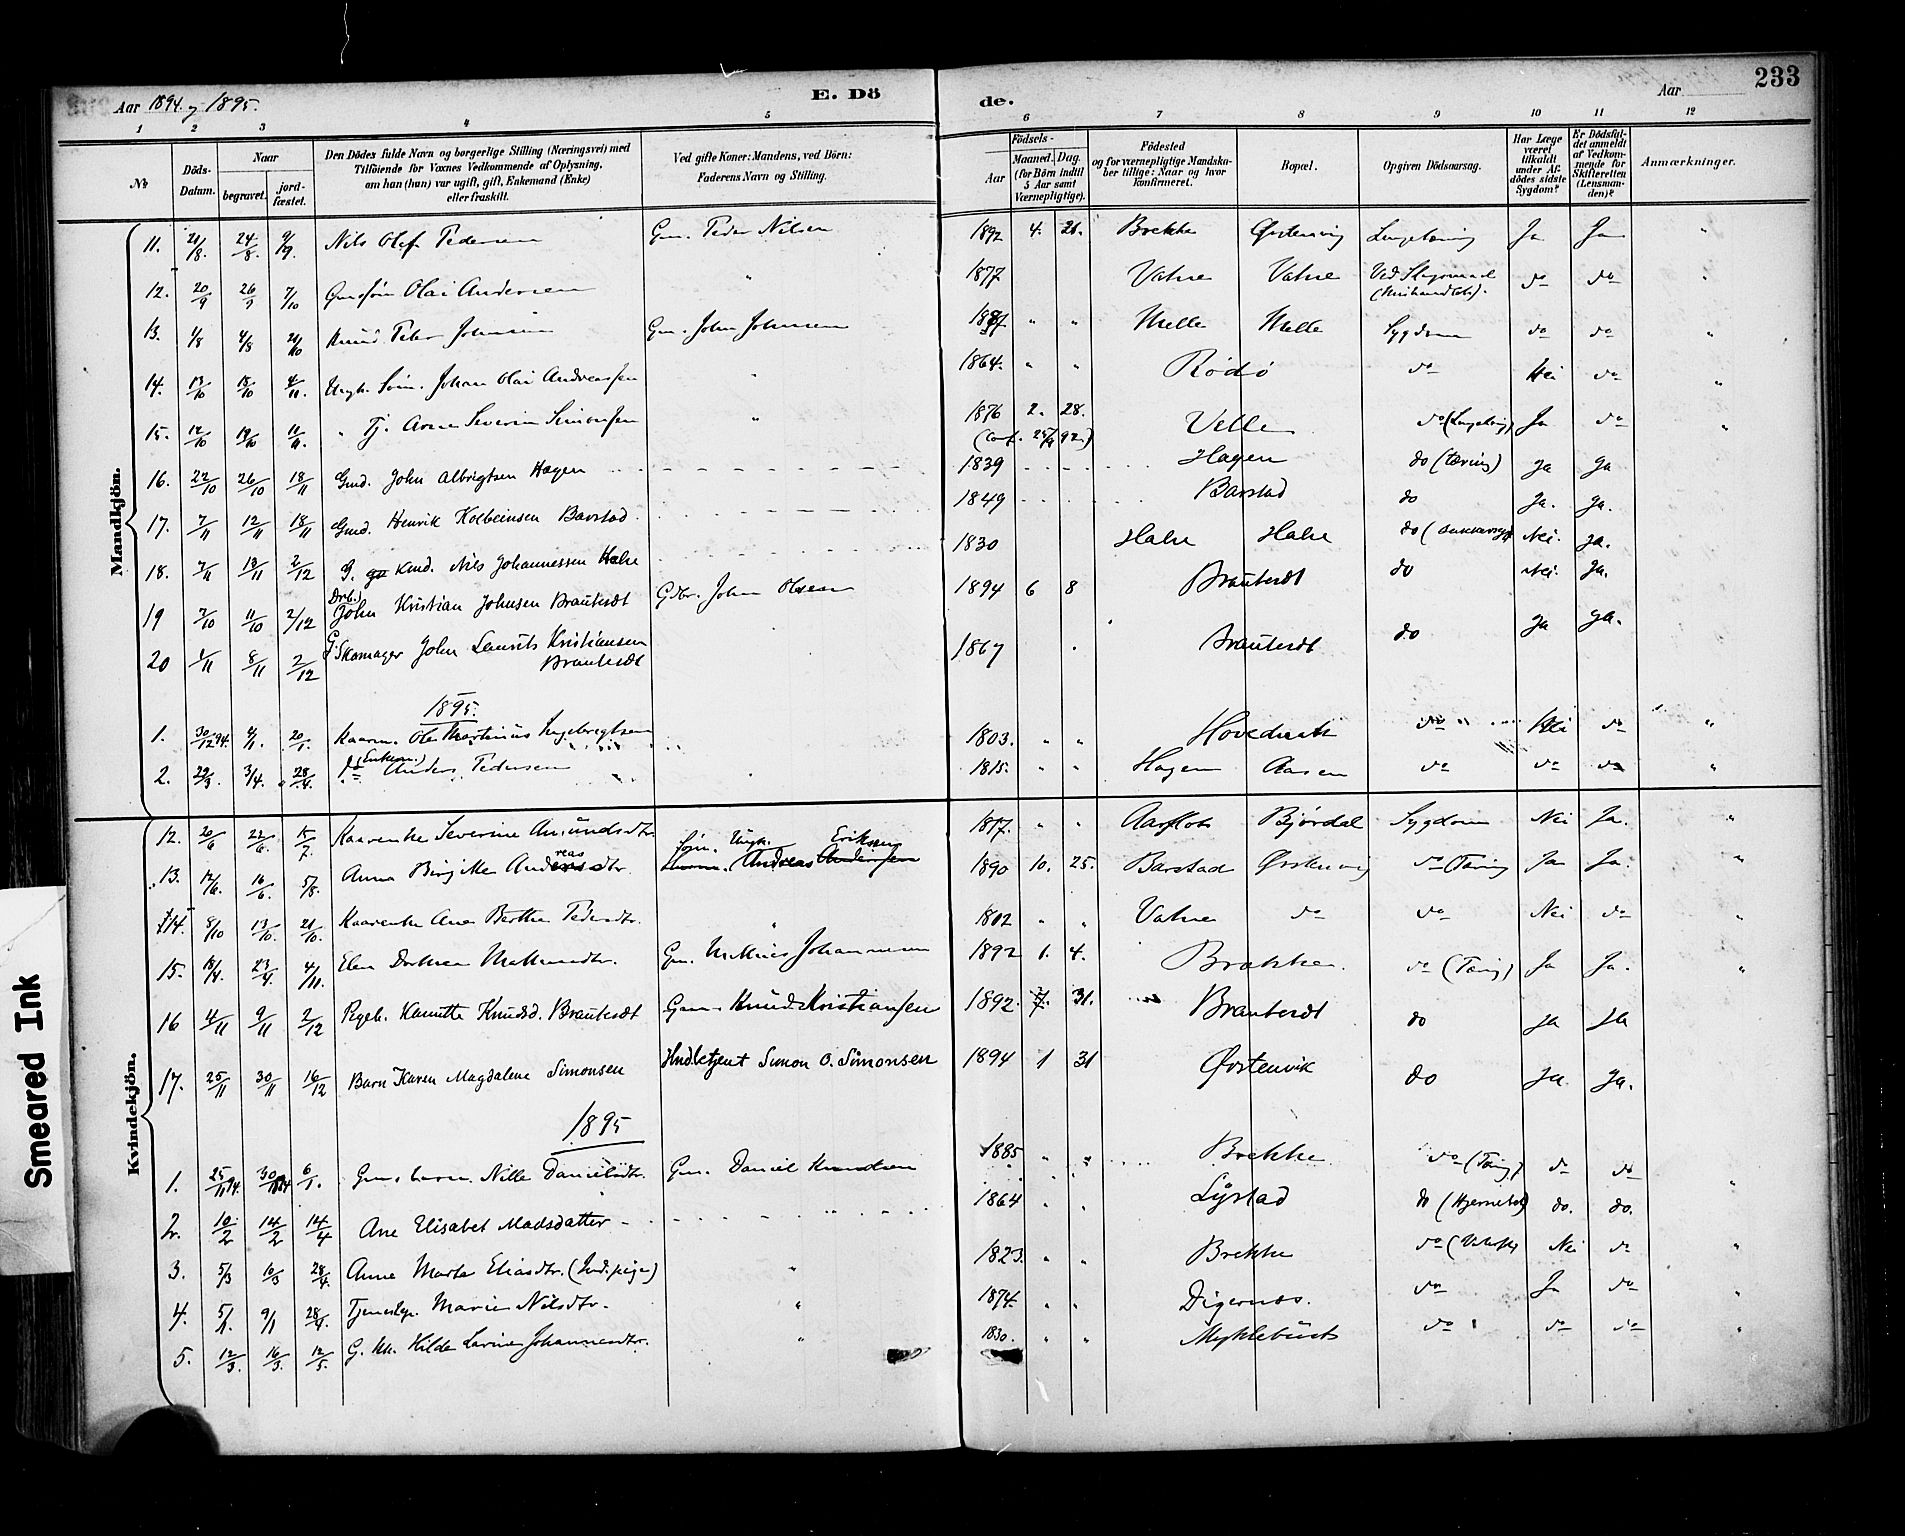 Aar 1894 og 1895.
E. Döde.
Aar
233
1 2 3 4 5 6 7 8 9 10 11 12
№
Döds-Datum.
Naar
begravet.
jord-fæstet.
Den Dödes fulde Navn og borgerlige Stilling (Næringsvei) med
Tilföiende for Voxnes Vedkommende af Oplysning,
om han (hun) var ugift, gift, Enkemand (Enke)
eller fraskilt.
Ved gifte Koner: Mandens, ved Börn:
Faderens Navn og Stilling.
Födsels-
Aar
Maaned. Dag.
(for Börn indtil
5 Aar samt
Værnepligtige).
Födested
og for værnepligtige Mandska-
ber tillige: Naar og hvor
konfirmeret.
Bopæl.
Opgiven Dödsaarsag.
Har Læge
været
tilkaldt
under Af-
dödes sidste
Sygdom?
Er Dödsfal-
det anmeldt
af Vedkom-
mende for
Skifteretten
(Lensman-
den)?
Anmærkninger.
Mandkjön.
11. 20/8. 24/8. 9/9. Nils Olef Pedersen Gm. Peder Nilsen 1892 4. 21. Brekke Ørstenvig Ja Ja "
12. 20/9 26/9 7/10 Olai Andersen " 1877 Vatne Vatne do do "
13. 1/8 4/8 20/10 Knud Peter Johnsen Gm. John Johnsen " " Melle Melle Sygdom do do "
14. 13/10 18/10 4/11. Ungk. Johan Olai Andreassen " 1864. " " Rødø do Nei do "
15. 12/10 19/10 11/11. " Tj. Arne Severin Simonsen " 1876 2. 28. Velle do Ja do "
(Conf. 25/9 92.)
16. 22/10 26/10 18/11 Gmd. John Albrigtsen Hagen 1839 Hagen do (tæring) Ja Ja
17. 7/11 12/11 18/11 Gmd. Henrik Kolbeinsen Barstad 1849 Barstad do Ja. Ja.
18. 7/11 13/11 2/12 G. Kmd. Nils Johannessen Halse 1830 Halse Halse do Nei. Ja.
19 7/10 11/10 2/12 John Kristian Johnsen Brautesæt Gdbr. John Olsen 1894 6 8 Brautesæt do Nei. Ja.
20 1/11 8/11 2/12 G. Skomager John Laurits Kristiansen
Brautesæt 1867 Brautesæt do Ja Ja.
1895.
1. 30/12 94. 4/1. 20/1. Kaarm. Ole Martinus Ingebrigtsen 1803. " " Hovedvatn do Nei do "
2. 29/3. 3/4. 28/4. do (Enkem.) Anders Pedersen 1815. Hagen Aasen do do do "
Kvindekjön.
12. 20/6 22/6. 15/7. Kaarenke Severine Amundsdtr. 1817. " " Aarflot Bjørdal Sygdom Nei Ja.
13. 12/6. 16/6. 5/8. Anna Birgitte Andreasdtr. Ungk. Andreas Eriksen 1890 10. 25. Barstad Ørstenvig do (Tæring) Ja Ja. "
14. 8/10 13/10. 21/10. Kaarenke Ane Berthe Pedersdtr. " 1802 " " Vatne do do Nei do "
15. Elen Dorthea Gm. Johannessen 1892 1. 4. Brekke. do (Tæring) Ja Ja. "
16 4/11 9/11 2/12 Pigeb. Knudsd. Brautesæt Gm. Knud Kristiansen 1892. 7. 31. Brautesæt do Ja Ja
17. 25/11 30/11 16/12 Barn Karen Magdalene Simonsen Hndbetjent Simon O. Simonsen 1894 1 31 Ørstenvik do Ja. Ja.
1895
1. 25/11 94. 6/1. Gm. barn. Nille Danielsdtr. Gm. Daniel Knudsen 1885 " " Brekke do (Tæring) do do
2. 10/2 14/2 14/4 Ane Elisabet Madsdatter 1864 " " Lystad do do. do.
3. 5/3 10/3 28/4. Anne Marte Eliasdtr. (Ind. pige) " 1823. " " Brekke do Nei do "
4. 5/1. 9/1 28/4. Tjenestep. Marie Nilsdtr. " 1874. " " Digernes. do Ja do "
5. 12/3. 16/3. 12/5. G. Kk. Hilda Johannesdtr. " 1830. " " Myklebust do do do "
Smeared Ink